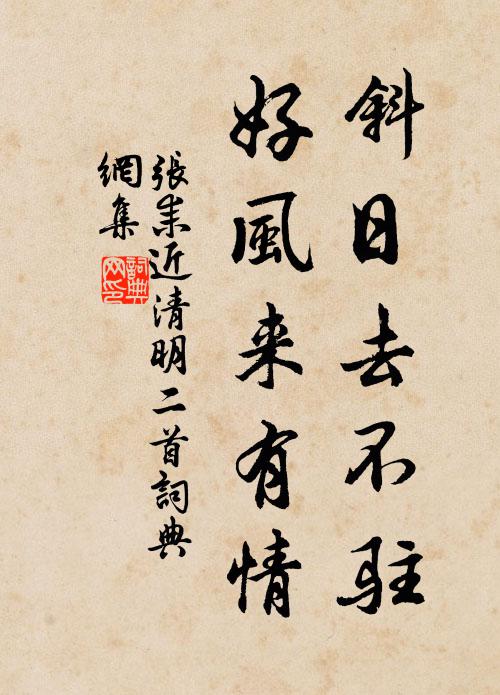 斜日去不駐
好風来有情
張耒近清明二首詞典
網集
詞典
网印